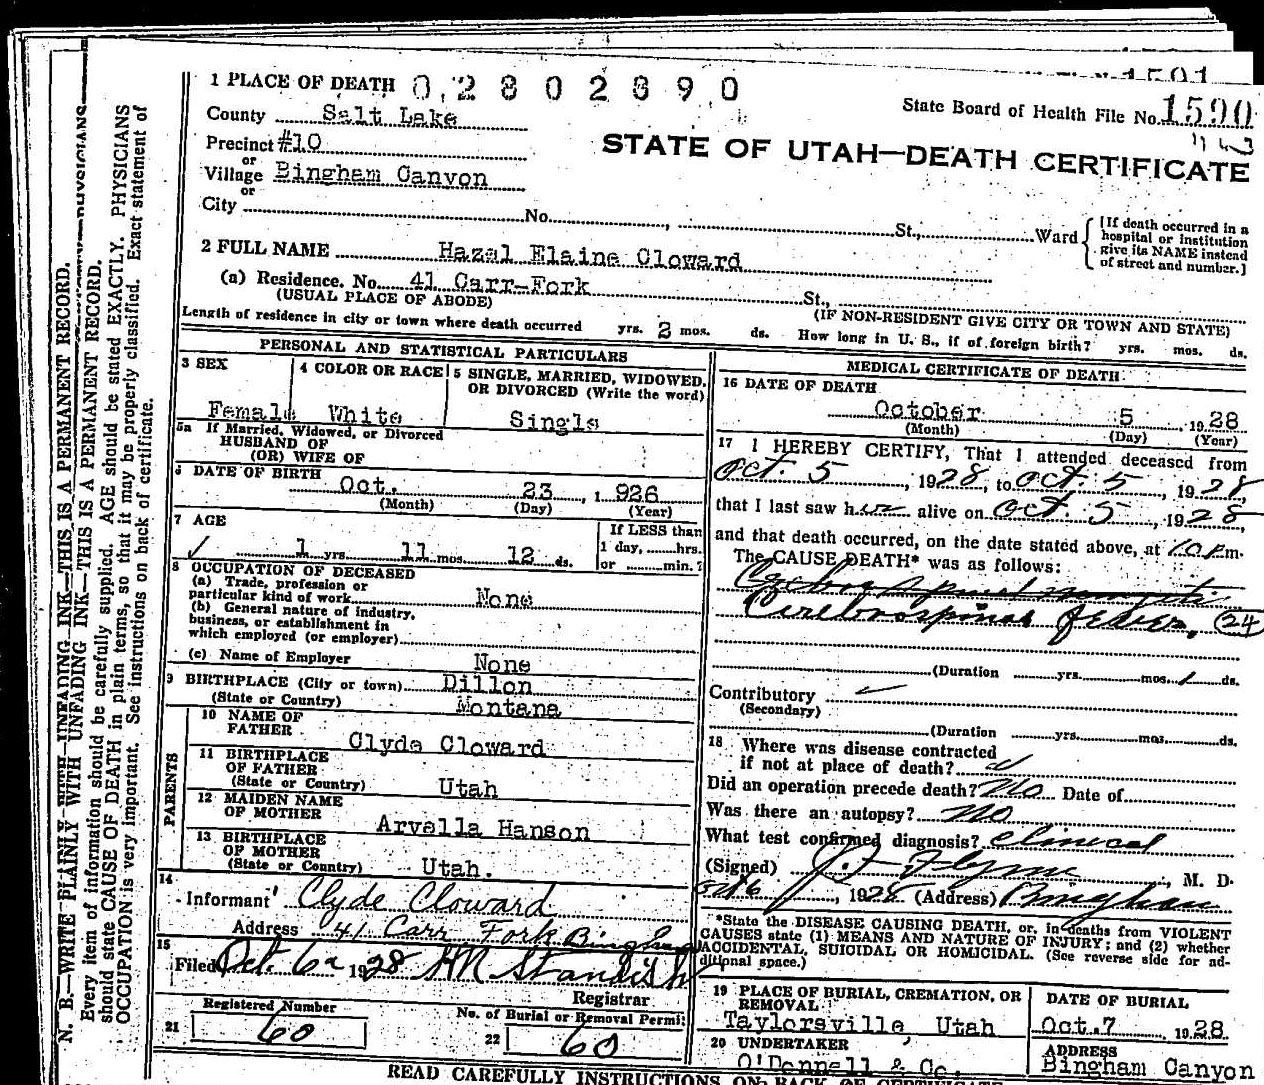 1591
1 PLACE OF DEATH 02802890
State Board of Health File No. 1590
County Salt Lake
Precinct #10
STATE OF UTAH—DEATH CERTIFICATE
or
Village Bingham Canyon
or
City No. , St., Ward
[If death occurred in a hospital or institution give its NAME instead of street and number.]
2 FULL NAME Hazel Elaine Cloward
(a) Residence. No. 41 Carr-Fork St.,
(USUAL PLACE OF ABODE) (IF NON-RESIDENT GIVE CITY OR TOWN AND STATE)
Length of residence in city or town where death occurred yrs. 2 mos. ds. How long in U. S., if of foreign birth? yrs. mos. ds.
PERSONAL AND STATISTICAL PARTICULARS
3 SEX Female
4 COLOR OR RACE White
5 SINGLE, MARRIED, WIDOWED, OR DIVORCED (Write the word) Single
5a If Married, Widowed, or Divorced
HUSBAND OF
(OR) WIFE OF
6 DATE OF BIRTH Oct. 23, 1926
(Month) (Day) (Year)
7 AGE
1 yrs. 11 mos. 12 ds.
If LESS than
1 day, hrs.
or min.?
8 OCCUPATION OF DECEASED
(a) Trade, profession or
particular kind of work None
(b) General nature of industry,
business, or establishment in
which employed (or employer)
(c) Name of Employer None
9 BIRTHPLACE (City or town) Dillon
(State or Country) Montana
PARENTS
10 NAME OF
FATHER Clyde Cloward
11 BIRTHPLACE
OF FATHER
(State or Country) Utah
12 MAIDEN NAME
OF MOTHER Arvella Hanson
13 BIRTHPLACE
OF MOTHER
(State or Country) Utah.
14
Informant Clyde Cloward
Address 41 Carr Fork Bingham
15
Filed Oct. 6 1928 HN Standish
Registrar
Registered Number
21 60
No. of Burial or Removal Permit
22 60
MEDICAL CERTIFICATE OF DEATH
16 DATE OF DEATH
October 5 1928
(Month) (Day) (Year)
17 I HEREBY CERTIFY, That I attended deceased from
Oct. 5, 1928, to Oct. 5, 1928,
that I last saw her alive on Oct. 5, 1928
and that death occurred, on the date stated above, at 10 P.m.
The CAUSE DEATH* was as follows:
Cerebrospinal Feaver. 24
(Duration yrs. mos. 1 ds.
Contributory
(Secondary)
(Duration yrs. mos. ds.
18 Where was disease contracted
if not at place of death?
Did an operation precede death? No Date of
Was there an autopsy? No
What test confirmed diagnosis? Clinical
(Signed) J. Flynn, M. D.
1928 (Address) Bingham
*State the DISEASE CAUSING DEATH, or, in deaths from VIOLENT
CAUSES state (1) MEANS AND NATURE OF INJURY; and (2) whether
ACCIDENTAL, SUICIDAL OR HOMICIDAL. (See reverse side for ad-
ditional space.)
19 PLACE OF BURIAL, CREMATION, OR
REMOVAL
Taylorsville, Utah
DATE OF BURIAL
Oct. 7 1928
20 UNDERTAKER
O'Donnell & Co.
ADDRESS
Bingham Canyon
READ CAREFULLY INSTRUCTIONS ON BACK OF CERTIFICATE
N. B.—WRITE PLAINLY WITH UNFADING INK—THIS IS A PERMANENT RECORD.
INK—THIS IS A PERMANENT RECORD.
Every item of information should be carefully supplied. AGE should be stated EXACTLY. PHYSICIANS
should state CAUSE OF DEATH in plain terms, so that it may be properly classified. Exact statement of
OCCUPATION is very important. See instructions on back of certificate.